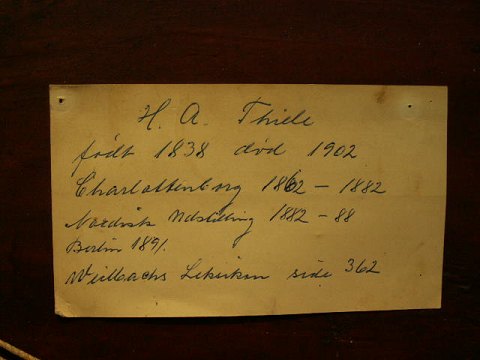 H. A. Thiele
født 1838 død 1902
Charlottenborg 1862 - 1882
Nordisk Udstilling 1882 - 88
Berlin 1891.
Weilbachs Leksikon side 362